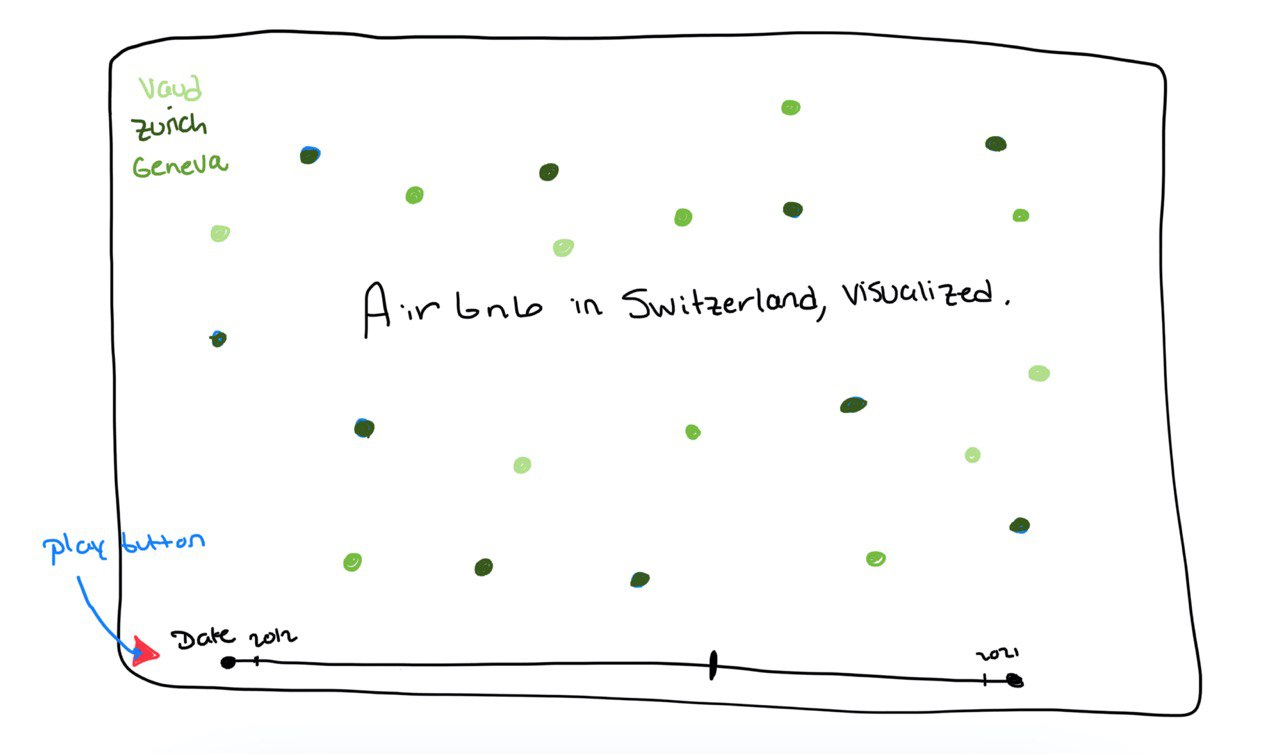 Vaud
Zurich
Geneva
Airbnb in Switzerland, visualized.
play button
Date 2012
2021